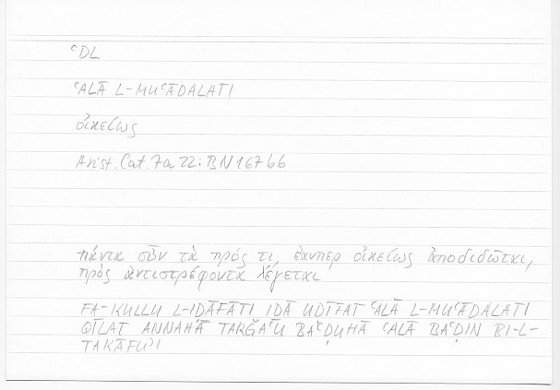 ʿDL
ʿALĀ L-MUʿĀDALATI
οἰκείως
Arist. Cat. 7a 22; BN 167b6
πάντα οὖν τὰ πρός τι, ἐάνπερ οἰκείως ἀποδιδῶται,
πρὸς ἀντιστρέφοντα λέγεται
FA-KULLU L-IḌĀFĀTI IḎĀ UḌĪFAT ʿALĀ L-MUʿĀDALATI
QĪLAT ANNAHĀ TARǦAʿU BAʿḌUHĀ ʿALĀ BAʿḌIN BI-L-
TAKĀFUʾI